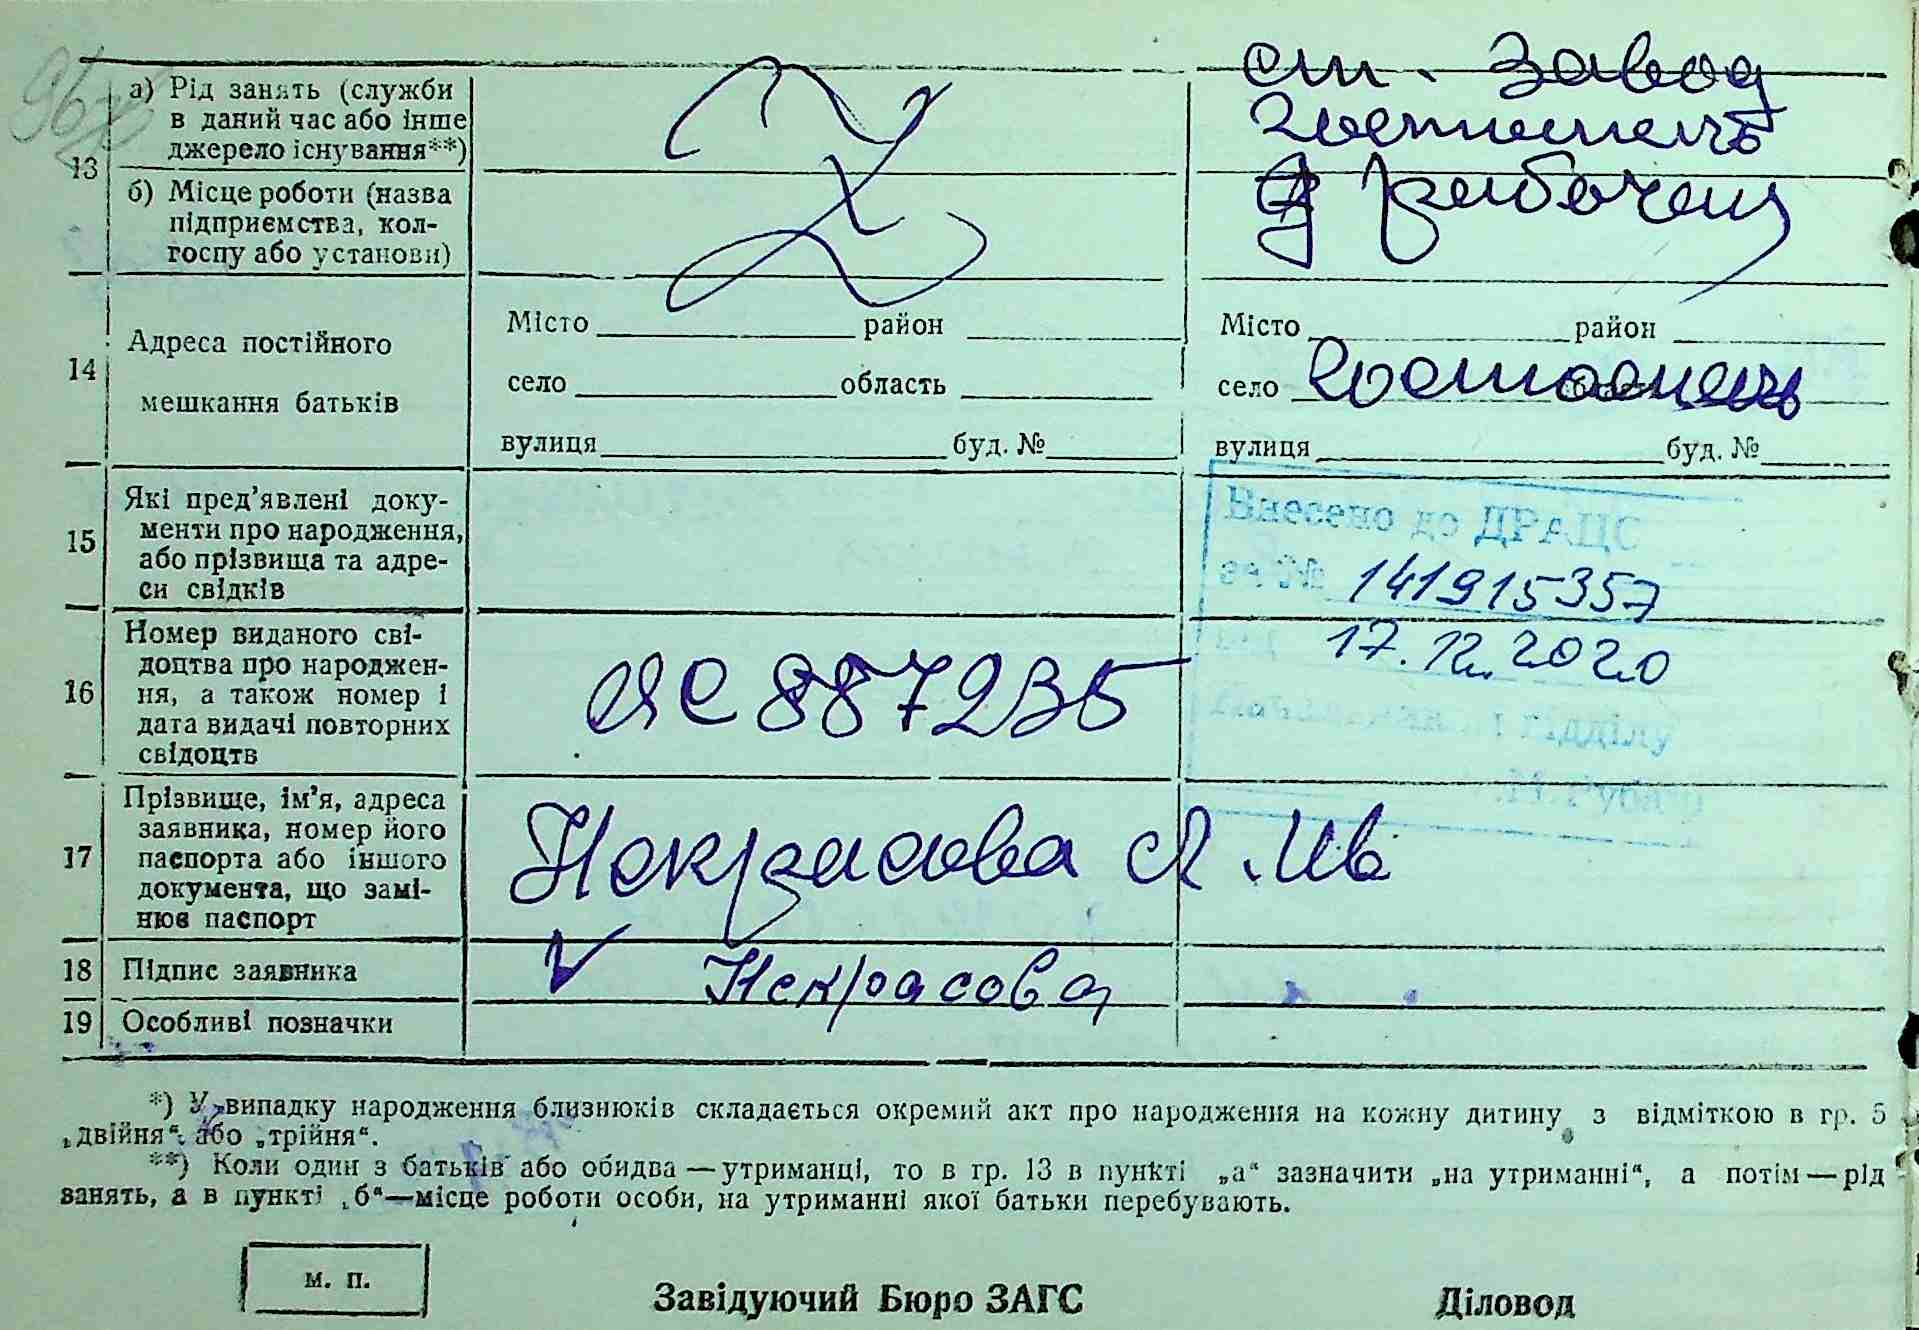 13
а) Рід занять (служби
в даний час або інше
джерело існування**)
ст. Завод
Гостомель
б) Місце роботи (назва
підприємства, кол-
госпу або установи)
рабочая
14
Адреса постійного
мешкання батьків
Місто район
село область
вулиця буд. №
Місто район
село Гостомель
вулиця буд. №
15
Які пред'явлені доку-
менти про народження,
або прізвища та адре-
си свідків
Внесено до ДРАЦС
за № 141915357
від 17.12.2020
16
Номер виданого сві-
доцтва про народжен-
ня, а також номер і
дата видачі повторних
свідоцтв
ЯС 887235
відділу
17
Прізвище, ім'я, адреса
заявника, номер його
паспорта або іншого
документа, що замі-
нює паспорт
Некрасова Я. Ив
18 Підпис заявника
V Некрасова
19 Особливі позначки
*) У випадку народження близнюків складається окремий акт про народження на кожну дитину з відміткою в гр. 5
„двійня“ або „трійня“.
**) Коли один з батьків або обидва — утриманці, то в гр. 13 в пункті „а“ зазначити „на утриманні“, а потім — рід
занять, а в пункті „б“ — місце роботи особи, на утриманні якої батьки перебувають.
м. п.
Завідуючий Бюро ЗАГС
Діловод